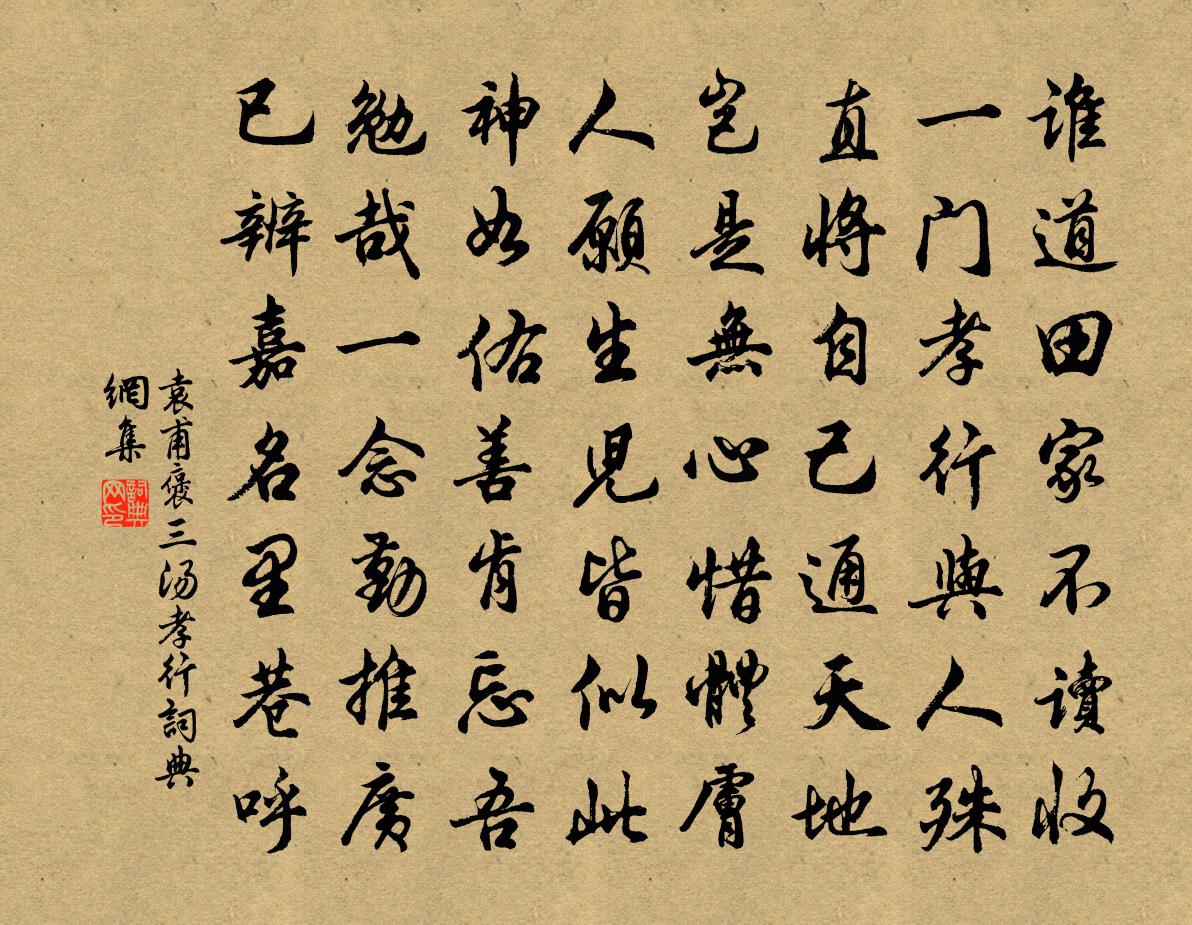 谁道田家不讀收
一门孝行與人殊
直將自己通天地
岂是無心惜體膚
人願生児皆似此
神如佑善肯忘吾
勉哉一念勤推廣
已辨嘉名里巷呼
袁甫褒三汤孝行詞典
網集
詞典
网印